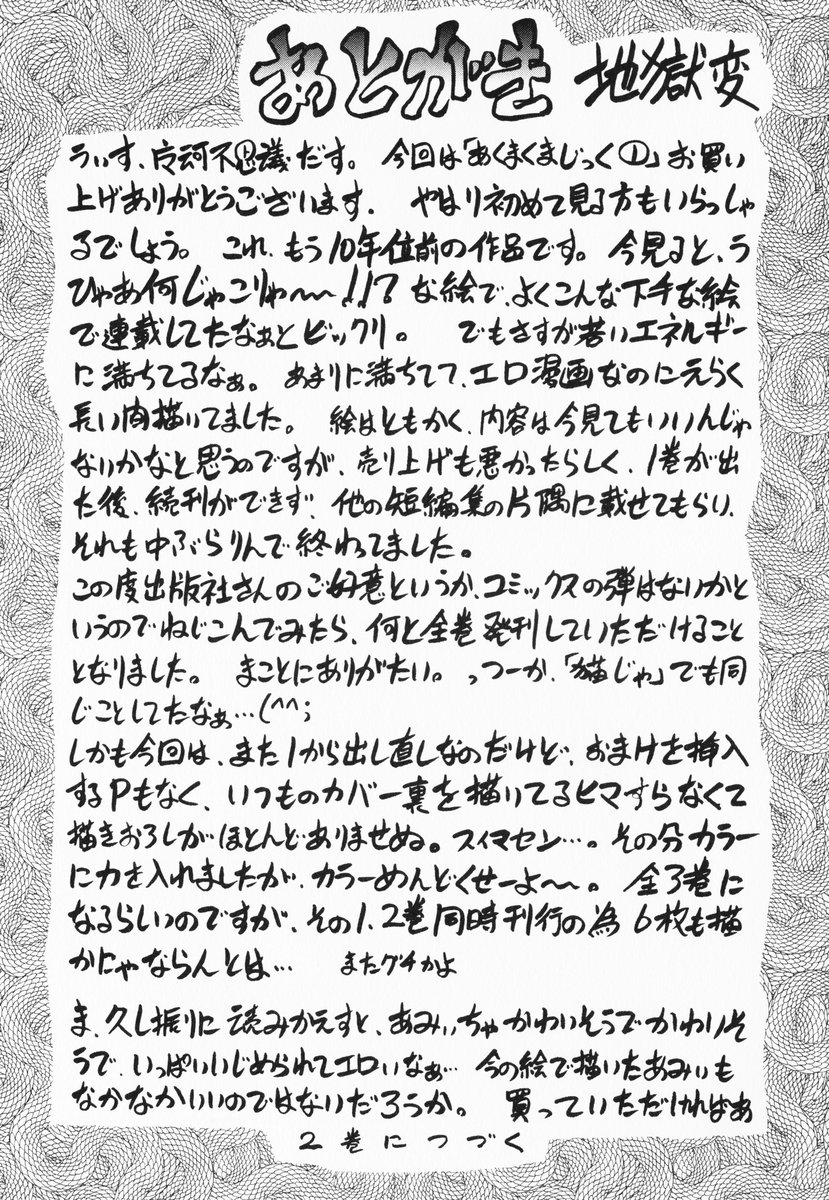 あとがき 地獄変
うぃす、白河不思議だす。 今回は「あくまくまじっく①」お買い
上げありがとうございます. やはり初めて見る方もいらっしゃ
るでしょう。 これ、もう10年位前の作品です。今見ると、う
ひゃあ何じゃこりゃ〜〜!!? な絵で、よくこんな下手な絵
で連載してたなぁとビックリ。 でもさすが若いエネルギー
に満ちてるなぁ。 あまりに満ちてて、エロ漫画なのにえらく
長い肉描いてました。 絵はともかく、内容は今見てもいいんじゃ
ないかなと思うのですが、売り上げも悪かったらしく、1巻が出
た後、続刊ができず、他の短編集の片隅に載せてもらい、
それも中ぶらりんで終わってました。
この度出版社さんのご好意というか、コミックスの弾はないかと
いうのでねじこんでみたら、何と全巻発刊していただけること
となりました。 まことにありがたい。っつーか、「猫じゃ」でも同
じことしてたなぁ…(^^;
しかも今回は、また1から出し直しなのだけど、おまけを挿入
するPもなく、いつものカバー裏を描いてるヒマすらなくて
描きおろしがほとんどありませぬ。スィマセン…。その分カラー
に力を入れましたが、カラーめんどくせーよ〜〜。 全3巻に
なるらしいのですが、その1、2巻同時刊行の為 6枚も描
かにゃならんとは… またグチかよ
ま、久し振りに読みかえすと、あみぃちゃかわいそうでかわいそ
うで、いっぱいいじめられてエロいなぁ… 今の絵で描いたあみぃも
なかなかいいのではないだろうか。 買っていただければあ
2巻につづく